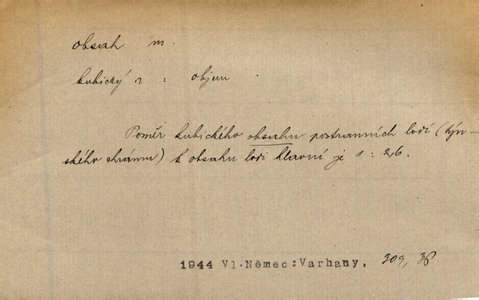 obsah m.
kubický a : objem
Poměr kubického obsahu postranních lodí (týn-
ského chrámu) k obsahu lodi hlavní je 1 : 2,6.
1944 Vl.Němec:Varhany, 309, 38